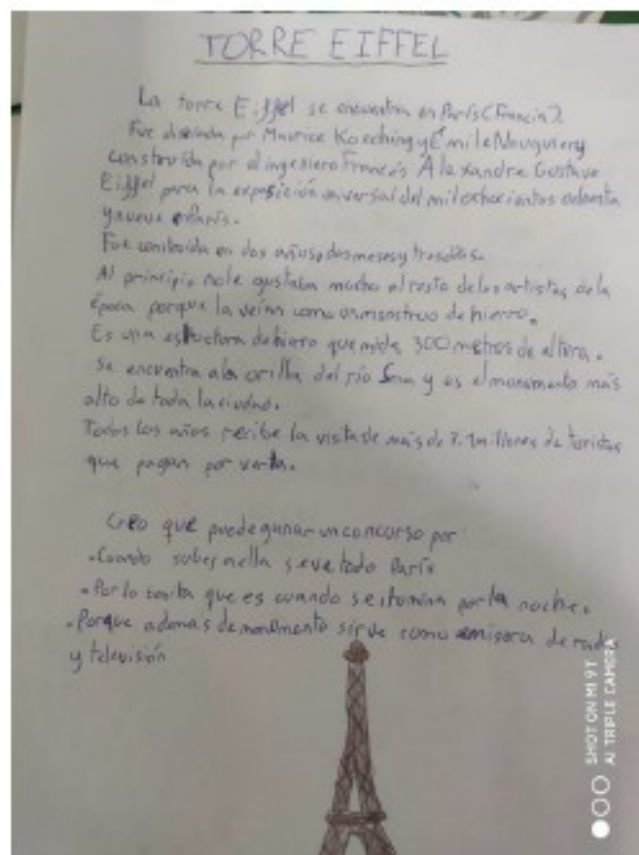 TORRE EIFFEL
La torre Eiffel se encuentra en París (Francia).
Fue diseñada por Maurice Koeching y Émile Nouguier y
construida por el ingeniero Francés Alexandre Gustave
Eiffel para la exposición universal del mil ochocientos ochenta
y nueve París.
Fue construida en dos años, dos meses y tres días.
Al principio no le gustaba mucho al resto de los artistas de la
época porque la veían como un monstruo de hierro.
Es una estructura de hierro que mide 300 metros de altura.
Se encuentra a la orilla del río Sena y es el monumento más
alto de toda la ciudad.
Todos los años recibe la visita de más de 7.1 millones de turistas
que pagan por verla.
Creo que puede ganar un concurso por:
• Cuando subes en ella se ve todo París
• Por lo bonita que es cuando se ilumina por la noche.
• Porque ademas de monumento sirve como emisora de radio
y televisión
SHOT ON MI 9T
AI TRIPLE CAMERA